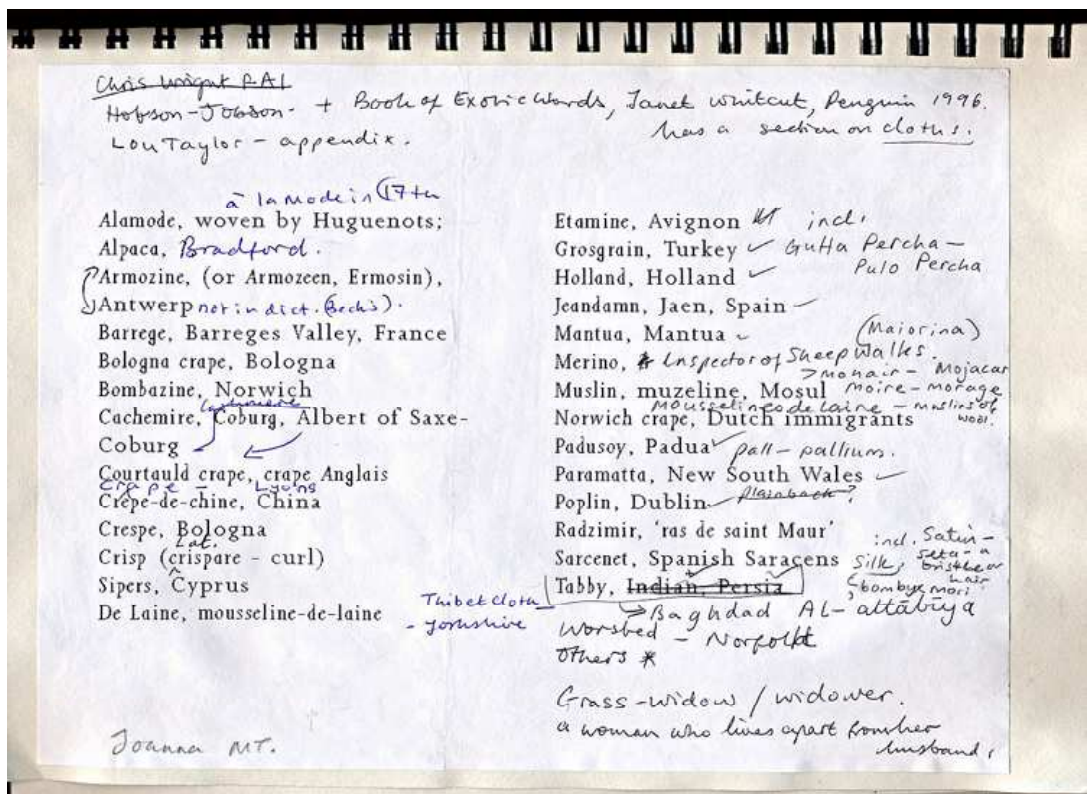 Chris Wright RAI
Hobson-Jobson. + Book of Exotic Words, Janet Whitcut, Penguin 1996.
has a section on cloths.
Lou Taylor - appendix.
à la mode in (17th
Alamode, woven by Huguenots;
Alpaca, Bradford.
Armozine, (or Armozeen, Ermosin),
Antwerp not in dict. (Beck's).
Barrege, Barreges Valley, France
Bologna crape, Bologna
Bombazine, Norwich
cashmere
Cachemire, Coburg, Albert of Saxe-
Coburg
Courtauld crape, crape Anglais
Crape Lyons
Crêpe-de-chine, China
Crespe, Bologna
Lat.
Crisp (crispare - curl)
Sipers, Cyprus
De Laine, mousseline-de-laine
Thibet Cloth
- Yorkshire
Joanna MT.
Etamine, Avignon incl.
Grosgrain, Turkey ✓ Gutta Percha -
Pulo Percha
Holland, Holland ✓
Jeandamn, Jaen, Spain
Mantua, Mantua
(Maiorina)
Merino, Inspector of Sheep Walks.
> mohair - Mojacar
Muslin, muzeline, Mosul moire - morage
mousseline de laine - muslins of
wool.
Norwich crape, Dutch immigrants
Padusoy, Padua ✓ pall - pallium.
Paramatta, New South Wales
Poplin, Dublin plainback?
Radzimir, 'ras de saint Maur'
incl. Satin -
seta - a
bristle or
hair
Sarcenet, Spanish Saracens Silk,
bombyx mori
Tabby, Indian, Persia
Baghdad AL-attābiya
Worsted - Norfolk
others *
Grass-widow / widower.
a woman who lives apart from her
husband.